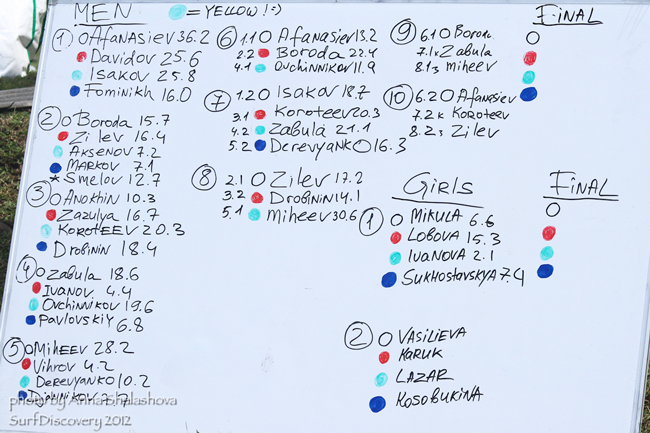 MEN = YELLOW! :-)
① Afanasiev 36.2
Davidov 25.6
Isakov 25.8
Fominikh 16.0
② Boroda 15.7
Zilev 16.4
Axsenov 7.2
Markov 7.1
* Smelov 12.7
③ Anokhin 10.3
Zazulya 16.7
Koroteev 20.3
Drobinin 18.4
④ Zabula 18.6
Ivanov 4.4
Ovchinnikov 19.6
Pavlovskiy 6.8
⑤ Miheev 28.2
Vihrov 4.2
Derevyanko 10.2
⑥ 1.1 Afanasiev 13.2
2.2 Boroda 22.4
4.1 Ovchinnikov 11.9
⑦ 1.2 Isakov 18.7
3.1 Koroteev 20.3
4.2 Zabula 21.1
5.2 Derevyanko 16.3
⑧ 2.1 Zilev 17.2
3.2 Drobinin 14.1
5.1 Miheev 30.6
⑨ 6.1 Boroda
7.1 x Zabula
8.1 Miheev
⑩ 6.2 Afanasiev
7.2 x Koroteev
8.2 Zilev
FINAL
GIRLS
① Mikula 6.6
Lobova 15.3
Ivanova 2.1
Sukhostavskya 7.4
② Vasilieva
Karuk
Lazar
Kosobukina
FINAL
photo by Anna Shalashova
SurfDiscovery 2012